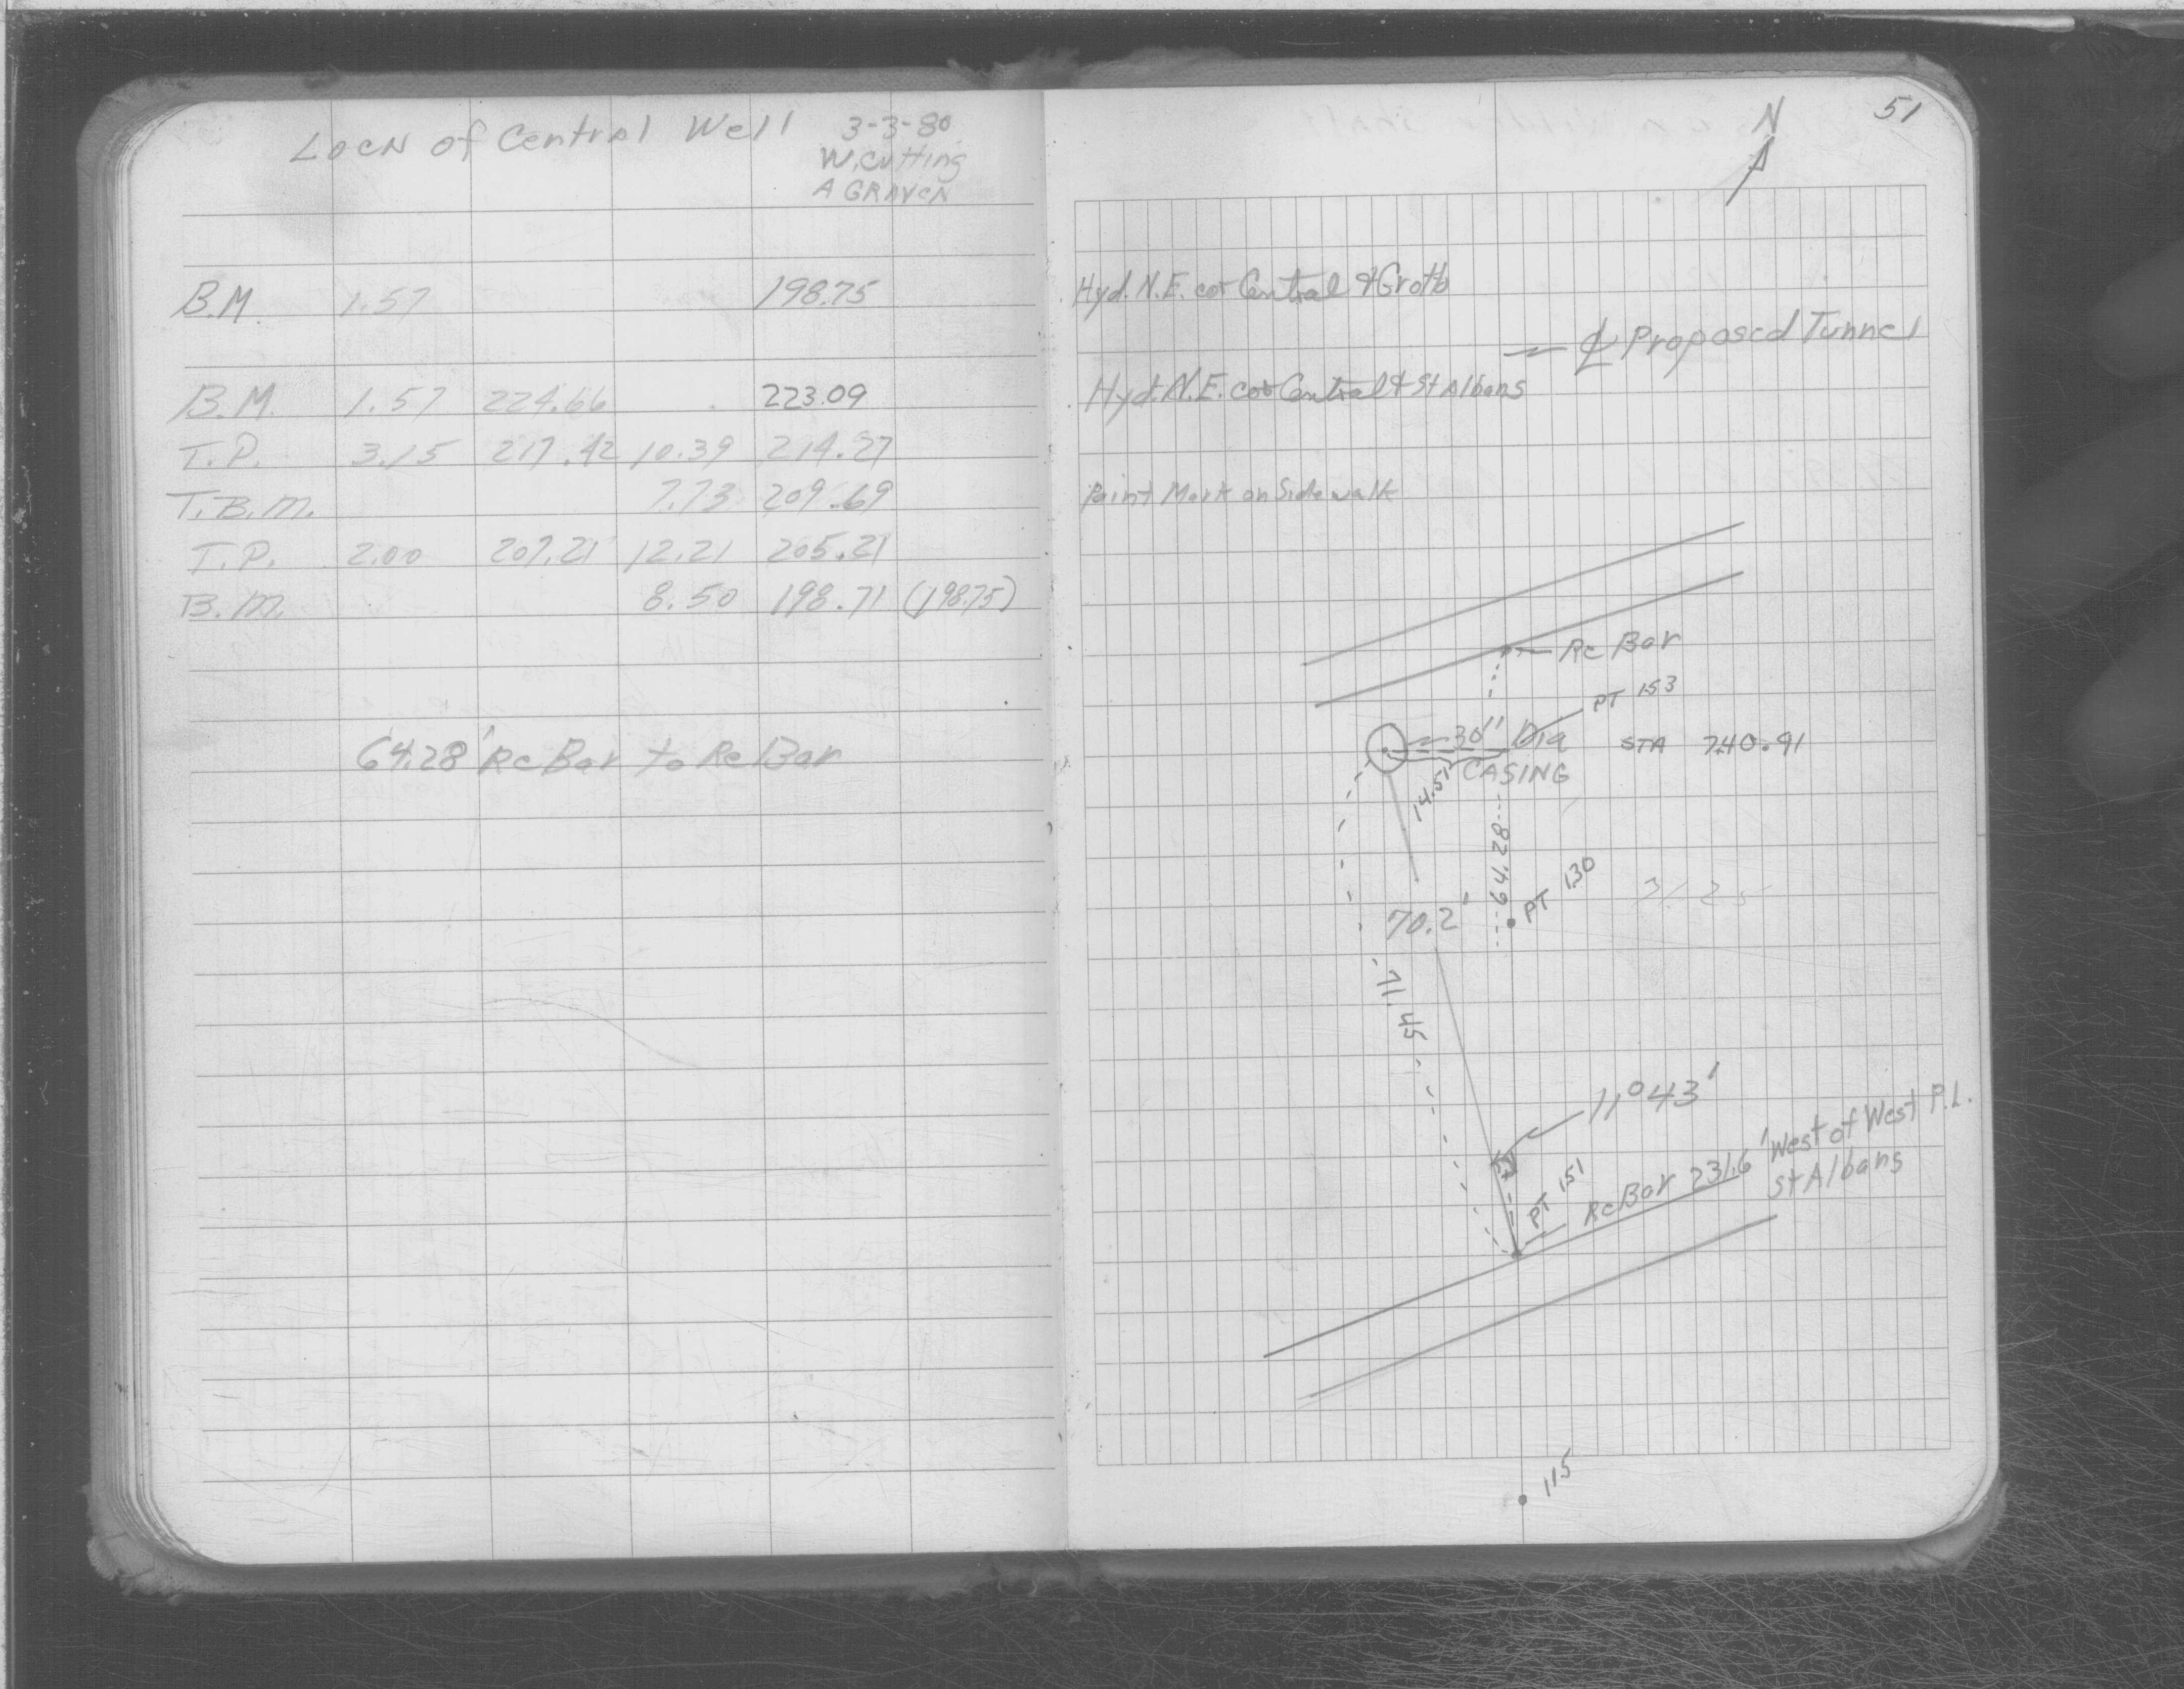 Locn of Central Well 3-3-80
W. Cutting
A GRAVEN
B.M. 1.57 198.75
B.M. 1.57 224.66 223.09
T.P. 3.15 217.42 10.39 214.27
T.B.M. 7.73 209.69
T.P. 2.00 207.21 12.21 205.21
B.M. 8.50 198.71 (198.75)
64.28' Re Bar to Re Bar
51
N
Hyd. N.E. cor Central & Grotto
℄ Proposed Tunnel
Hyd. N.E. cor Central & St Albans
Paint Mark on Sidewalk
Re Bar
PT 153
30" Dia
CASING
STA 740.91
14.51
64.28
PT 130
31.25
70.2'
71.45
11°43'
PT 151
Re Bar 231.6' West of West P.L.
St Albans
115